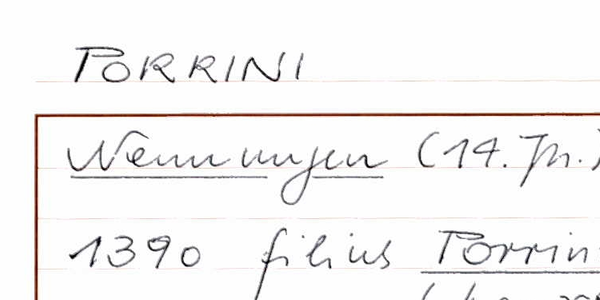 PORRINI
Nennungen (14. Jh.)
1390 filius Porrin